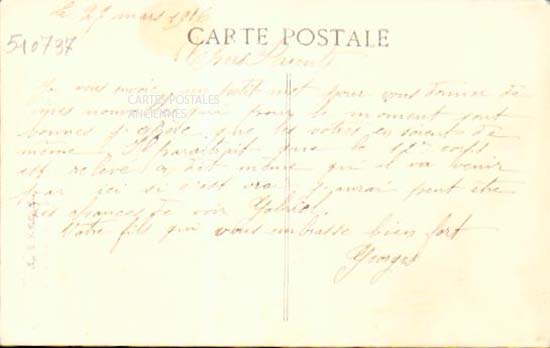 le 27 mars 1916
510737
CARTE POSTALE
Chers Parents
Je vous envoie un petit mot pour vous donner de
mes nouvelles qui pour le moment sont
CARTES POSTALES
ANCIENNES
bonnes j'espère que les votres en soient de
même. Il paraitrait que le 12e corps
est relevé on dit même qu'il va venir
par ici si c'est vrai j'aurai peut etre
la chance de voir Gabriel.
Votre fils qui vous embrasse bien fort
Georges